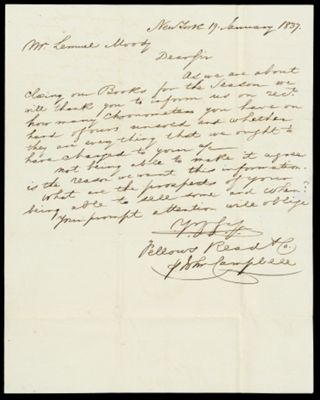 New York 19 January 1837.
Mr. Lemuel Moody
Dear Sir
As we are about
closing our Books for the Season we
will thank you to inform us on rect
how many Chronometers you have on
hand of ours unsold and whether
they are everything that we ought to
have charged to your a/c
not being able to make it agree
is the reason we want this information.
What are the prospects of your
being able to sell some and when?
Your prompt attention will oblige
Fellows Read & Co.
p John Campbell